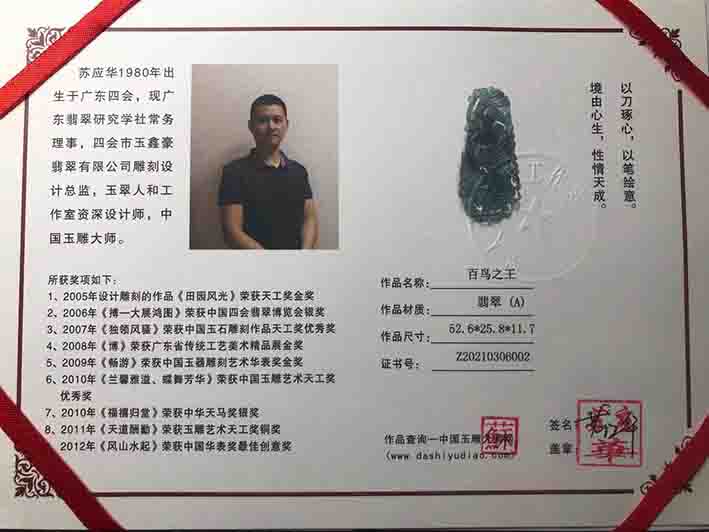 苏应华1980年出
生于广东四会，现广
东翡翠研究学社常务
理事，四会市玉鑫豪
翡翠有限公司雕刻设
计总监，玉翠人和工
作室资深设计师，中
国玉雕大师。
以刀琢心，以笔绘意。
境由心生，性情天成。
所获奖项如下：
1、2005年设计雕刻的作品《田园风光》荣获天工奖金奖
2、2006年《搏一大展鸿图》荣获中国四会翡翠博览会银奖
3、2007年《独领风骚》荣获中国玉石雕刻作品天工奖优秀奖
4、2008年《博》荣获广东省传统工艺美术精品展金奖
5、2009年《畅游》荣获中国玉器雕刻艺术华表奖金奖
6、2010年《兰馨雅溢、蝶舞芳华》荣获中国玉雕艺术天工奖
优秀奖
7、2010年《福禧归堂》荣获中华天马奖银奖
8、2011年《天道酬勤》荣获玉雕艺术天工奖铜奖
2012年《风山水起》荣获中国华表奖最佳创意奖
作品名称：百鸟之王
作品材质：翡翠（A）
作品尺寸：52.6*25.8*11.7
证书号：Z20210306002
作品查询一中国玉雕大师网
(www.dashiyudiao.com)
蘇
签名
盖章